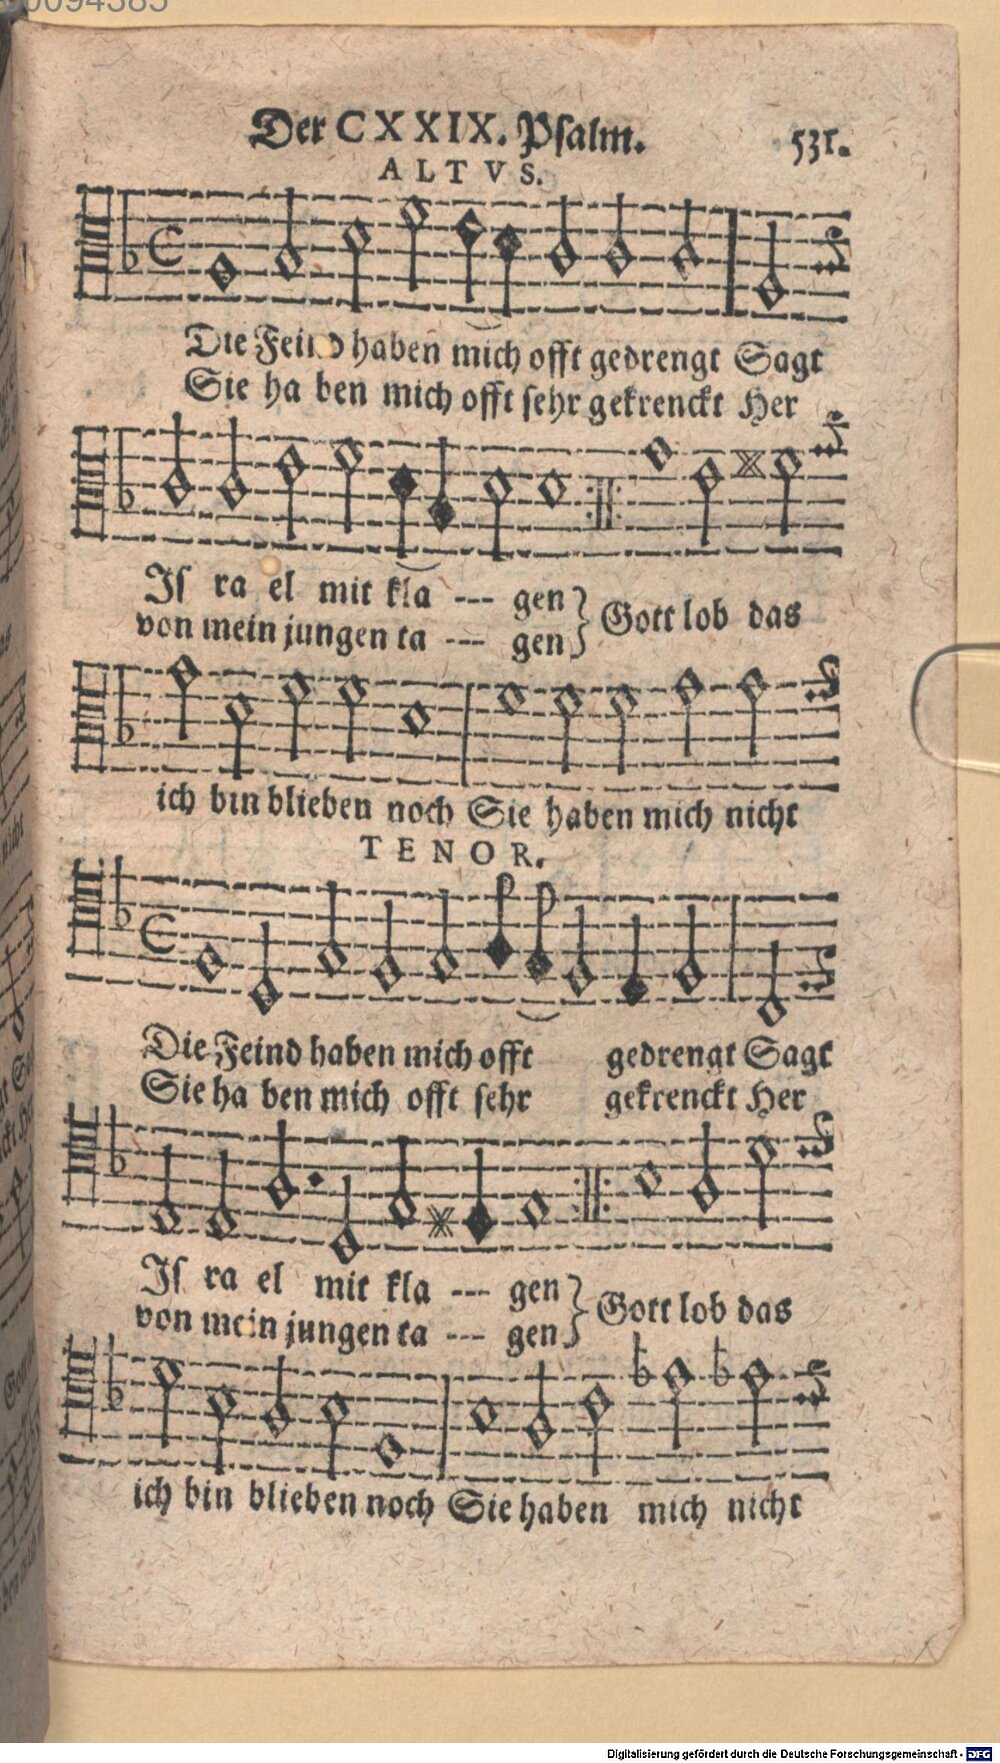 0094385
Der CXXIX. Psalm. 531.
ALTVS.
Die Feind haben mich offt gedrengt Sagt
Sie ha ben mich offt sehr gekrenckt Her
Jſ ra el mit kla --- gen } Gott lob das
von mein jungen ta --- gen
ich bin blieben noch Sie haben mich nicht
TENOR.
Die Feind haben mich offt gedrengt Sagt
Sie ha ben mich offt sehr gekrenckt Her
Jſ ra el mit kla --- gen } Gott lob das
von mein jungen ta --- gen
ich bin blieben noch Sie haben mich nicht
Digitalisierung gefördert durch die Deutsche Forschungsgemeinschaft - DFG